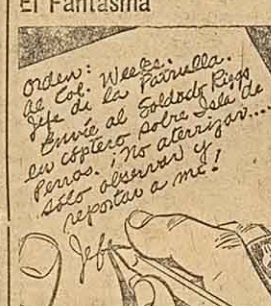 El Fantasma
Orden:
al Col. Weeks.
Jefe de la Patrulla.
Envíe al Soldado Riggs
en cóptero sobre Isla de
Perros. ¡No aterrizar...
sólo observar y
reportar a mí!
Jefe